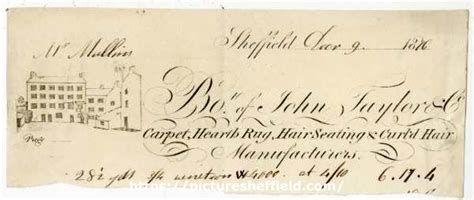 Sheffield Decr 9 1816
Mr Mullins
Bot. of John Taylor & Co
Carpet, Hearth Rug, Hair Seating & Curl'd Hair
Manufacturers.
28½ yds 3/4 venetian at 4/10 6.17.4
https://picturesheffield.com/